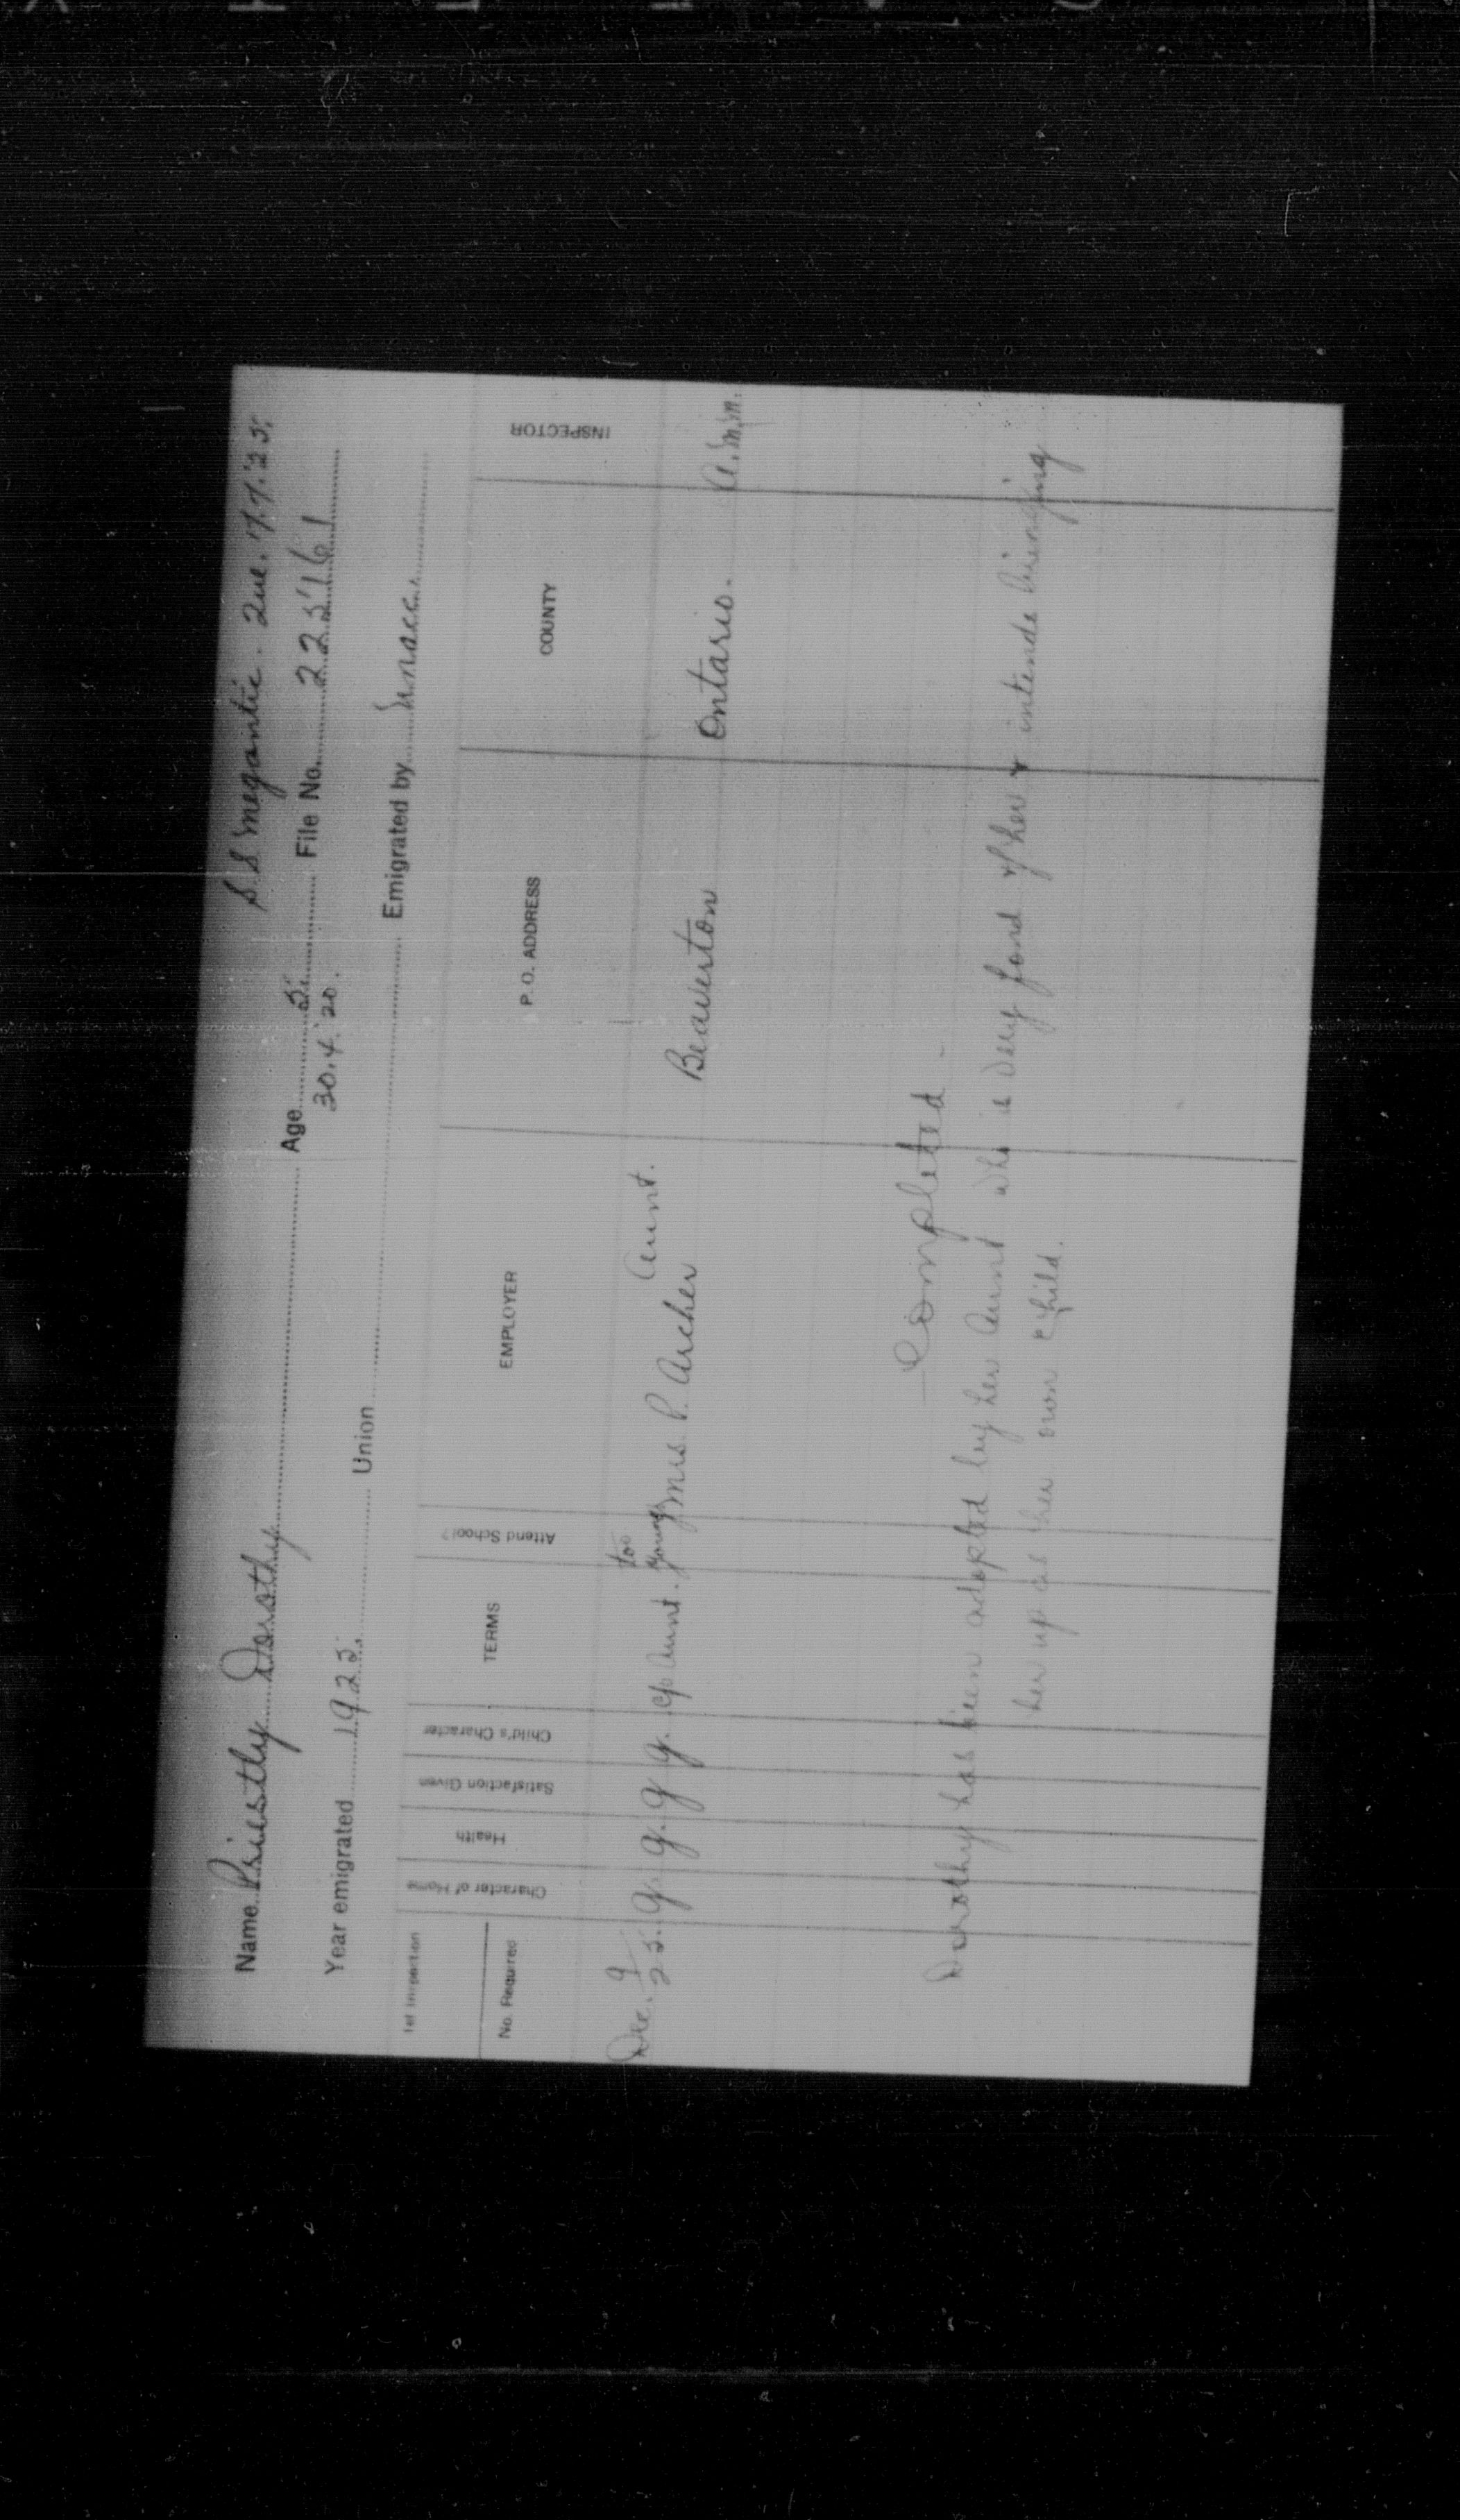 S.S Megantic. Que. 17.7.'25.
Name Priestly Dorothy Age 5. File No. 22516 1
30.4.'20.
Year emigrated 1925. Union Emigrated by Macc.
1st Inspection
No. Required
Character of Home
Health
Satisfaction Given
Child's Character
TERMS
Attend School?
EMPLOYER
P. O. ADDRESS
COUNTY
INSPECTOR
Dec. 9/25. g. g. g g. c/o Aunt. too young Mrs P. Archer Aunt. Beaverton Ontario. A.M.M.
- Completed -
Dorothy has been adopted by her Aunt who is very fond of her & intends bringing
her up as her own child.